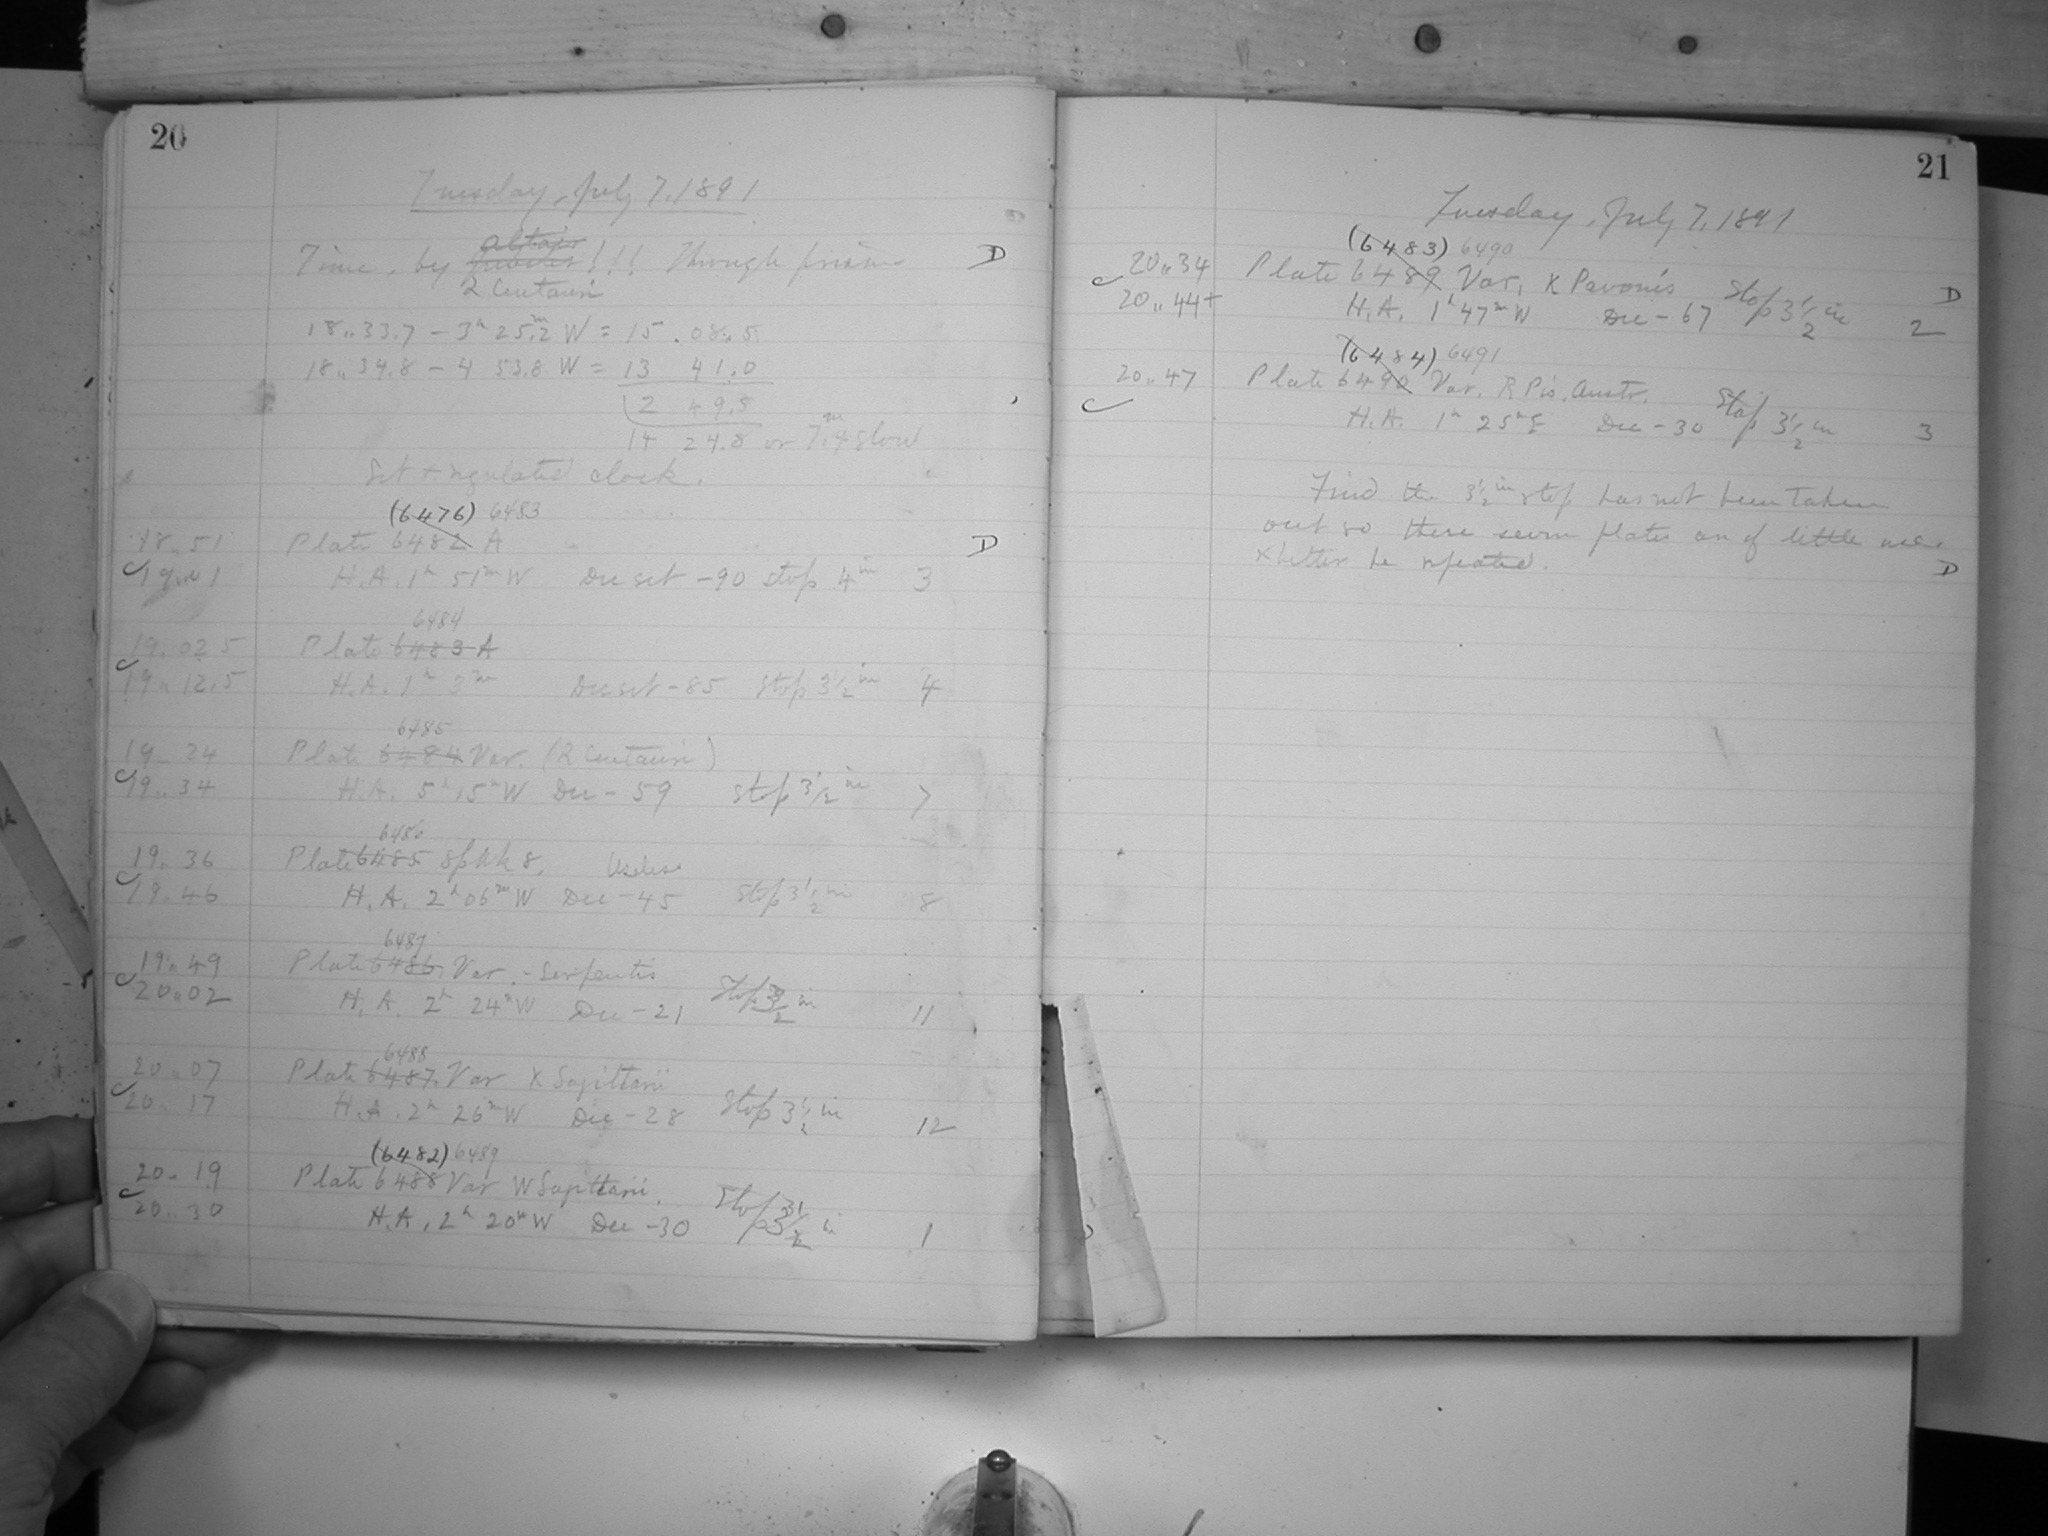 20
Tuesday, July 7, 1891
Time, by altair Jupiter!!! Through prism D
2 Centauri
18..33.7 - 3h 25.2m W = 15.08.5
18..34.8 - 4 53.8 W = 13 41.0
2 49.5
14 24.8 or 7.4m slow
Set + regulated clock.
(6476) 6483
18.51 Plate 6482 A D
19..01 H.A. 1h 51m W Dec set -90 stop 4in 3
6484
19.02.5 Plate 6483 A
19..12.5 H.A. 1h 3m Dec set -85 stop 3 1/2 in 4
6485
19..24 Plate 6484 Var. (2 Centauri)
19..34 H.A. 5h 15m W Dec -59 stop 3 1/2 in 7
6486
19.36 Plate 6485 Sp kk 8. Useless
19.46 H.A. 2h 06m W Dec -45 Stop 3 1/2 in 8
6487
19..49 Plate 6486. Var. - Serpentis
20..02 H.A. 2h 24m W Dec -21 Stop 3 1/2 in 11
6488
20..07 Plate 6487. Var X Sagittarii
20..17 H.A. 2h 26m W Dec -28 Stop 3 1/2 in 12
(6482) 6489
20..19 Plate 6488 Var W Sagittarii.
20..30 H.A. 2h 20m W Dec -30 Stop 3 1/2 in 1
21
Tuesday, July 7, 1891
(6483) 6490
20..34 Plate 6489 Var. K Pavonis Stop 3 1/2 in D
20..44+ H.A. 1h 47m W Dec -67 2
(6484) 6491
20..47 Plate 6490 Var. R Pis. Austr. Stop 3 1/2 in
H.A. 1h 25m E Dec -30 3
Find the 3 1/2 in stop has not been taken
out so these seven plates are of little use.
+ better be repeated. D